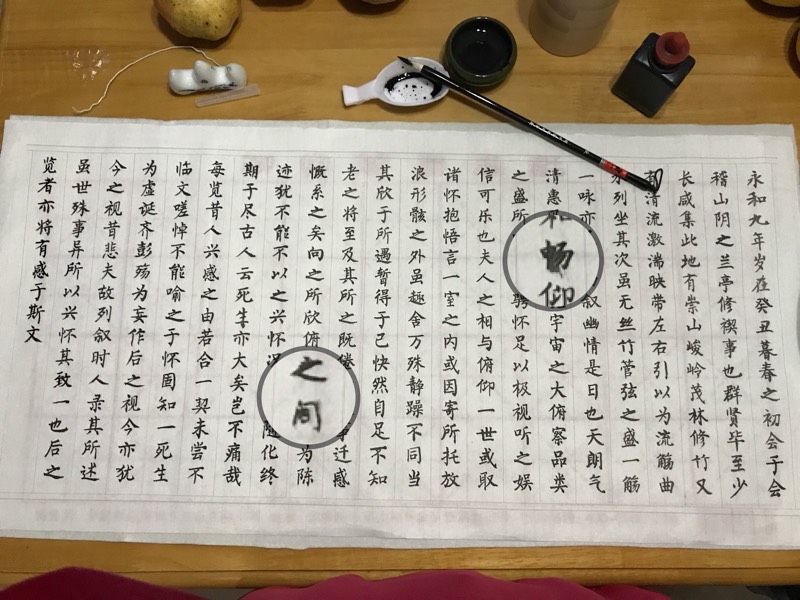 永和九年岁在癸丑暮春之初会于会
稽山阴之兰亭修禊事也群贤毕至少
长咸集此地有崇山峻岭茂林修竹又
清流激湍映带左右引以为流觞曲
水列坐其次虽无丝竹管弦之盛一觞
一咏亦叙幽情是日也天朗气
清惠畅仰宇宙之大俯察品类
之盛所骋怀足以极视听之娱
信可乐也夫人之相与俯仰一世或取
诸怀抱悟言一室之内或因寄所托放
浪形骸之外虽趣舍万殊静躁不同当
其欣于所遇暂得于己快然自足不知
老之将至及其所之既倦事迁感
慨系之矣向之所欣俯之间为陈
迹犹不能不以之兴怀况随化终
期于尽古人云死生亦大矣岂不痛哉
每览昔人兴感之由若合一契未尝不
临文嗟悼不能喻之于怀固知一死生
为虚诞齐彭殇为妄作后之视今亦犹
今之视昔悲夫故列叙时人录其所述
虽世殊事异所以兴怀其致一也后之
览者亦将有感于斯文